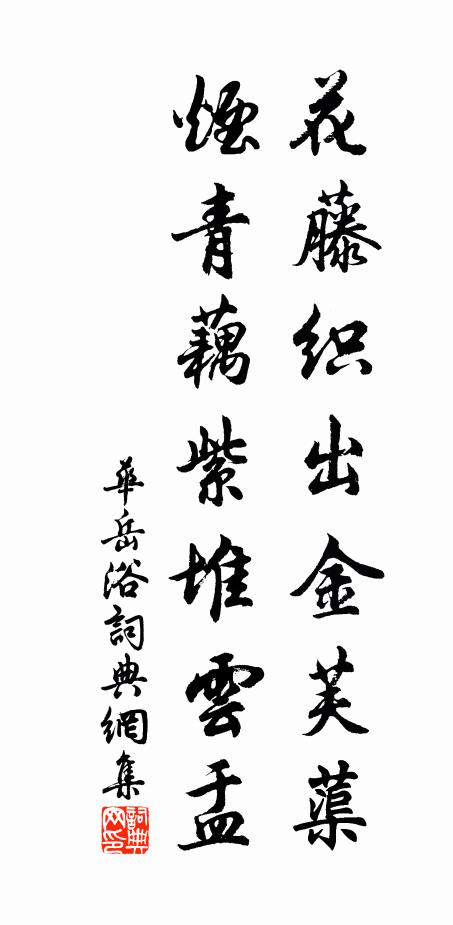 花藤织出金芙蕖
烟青藕紫堆雲盂
華岳浴詞典網集
詞典網印